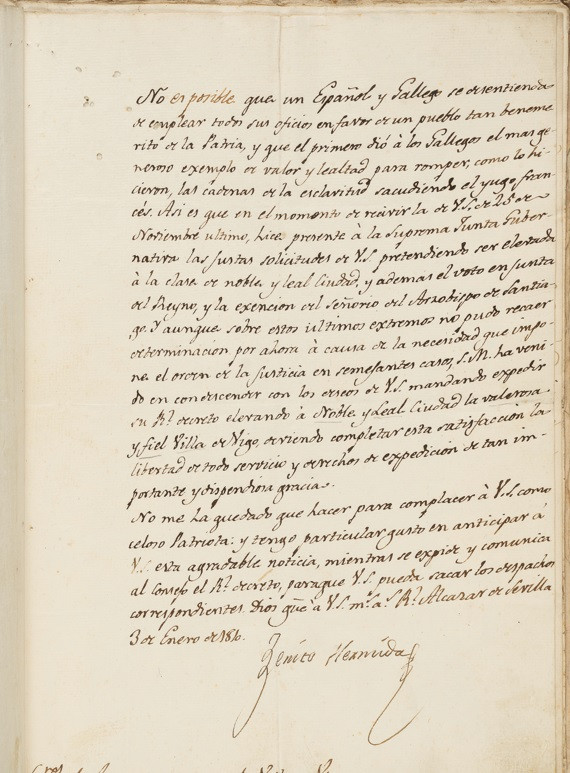 No es posible que un Español y Gallego se desentienda
de emplear todos sus oficios en favor de un pueblo tan beneme
rito de la Patria, y que el primero dió à los Gallegos el mas ge-
neroso exemplo de valor y lealtad para romper, como lo hi-
cieron, las cadenas de la esclavitud sacudiendo el yugo fran-
cés. Asi es que en el momento de recivir la de V.S. de 25 de
Noviembre ultimo, hice presente à la Suprema Junta Guber-
nativa las justas solicitudes de V.S. pretendiendo ser elevada
à la clase de noble y leal Ciudad, y ademas el voto en Junta
del Reyno, y la exencion del Señorio del Arzobispo de Santia-
go. Y aunque sobre estos ultimos extremos no pudo recaer
determinacion por ahora à causa de la necesidad que impo-
ne el orden de la justicia en semejantes casos, S.M. ha veni-
do en condescender con los deseos de V.S. mandando expedir
su Rl. decreto elevando à Noble y Leal Ciudad la valerosa
y fiel Villa de Vigo, deviendo completar esta satisfaccion la
libertad de todo servicio y derechos de expedicion de tan im-
portante y dispendiosa gracia.
No me ha quedado que hacer para complacer à V.S. como
celoso Patriota: y tengo particular gusto en anticipar à
V.S. esta agradable noticia, mientras se expide y comunica
al Consejo el Rl. decreto, para que V.S. pueda sacar los despachos
correspondientes. Dios gue. à V.S. ms. as. Rl. Alcazar de Sevilla
3 de Enero de 1810.
Benito Hermida